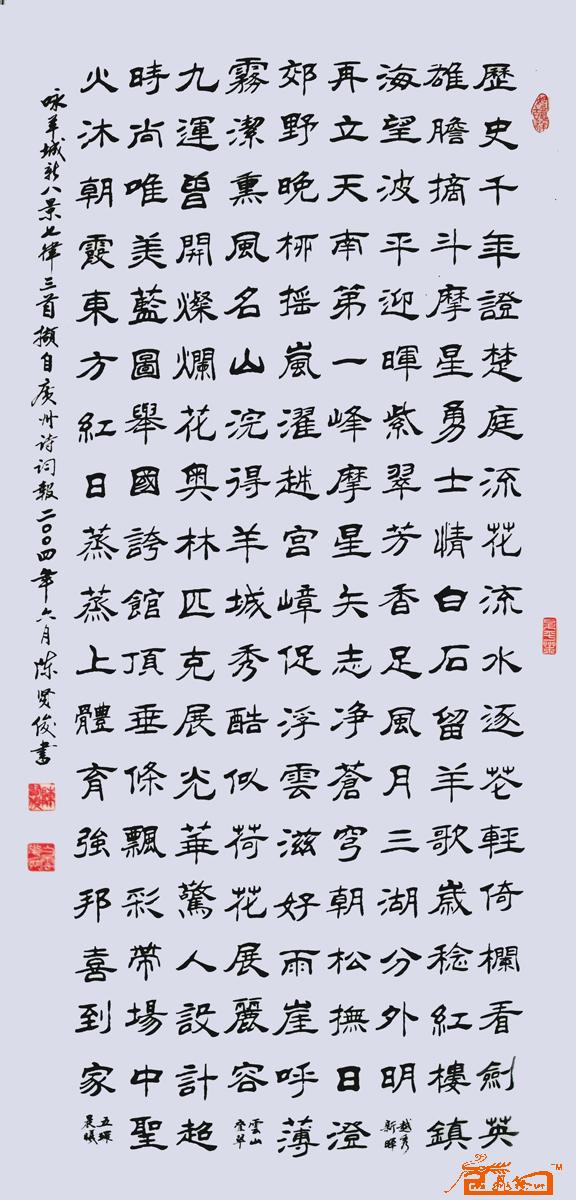 歷史千年證楚庭流花流水逐花輕倚欄看劍英
雄膽摘斗摩星勇士情白石留羊歌歲稔紅樓鎮
海望波平迎暉紫翠芳香足風月三湖分外明 越秀新暉
再立天南第一峰摩星矢志净蒼穹朝松撫日澄
郊野晚栁摇嵐濯越宮嶂促浮雲滋好雨崖呼薄
霧潔熏風名山浣得羊城秀酷似荷花展麗容 雲山疊翠
九運曾開燦爛花奧林匹克展光華驚人設計超
時尚唯美藍圖舉國誇館頂垂條飄彩帶場中聖
火沐朝霞東方紅日蒸蒸上體育強邦喜到家 五環晨曦
咏羊城新八景七律三首擷自廣州诗词報二〇〇四年六月陈贤俊書